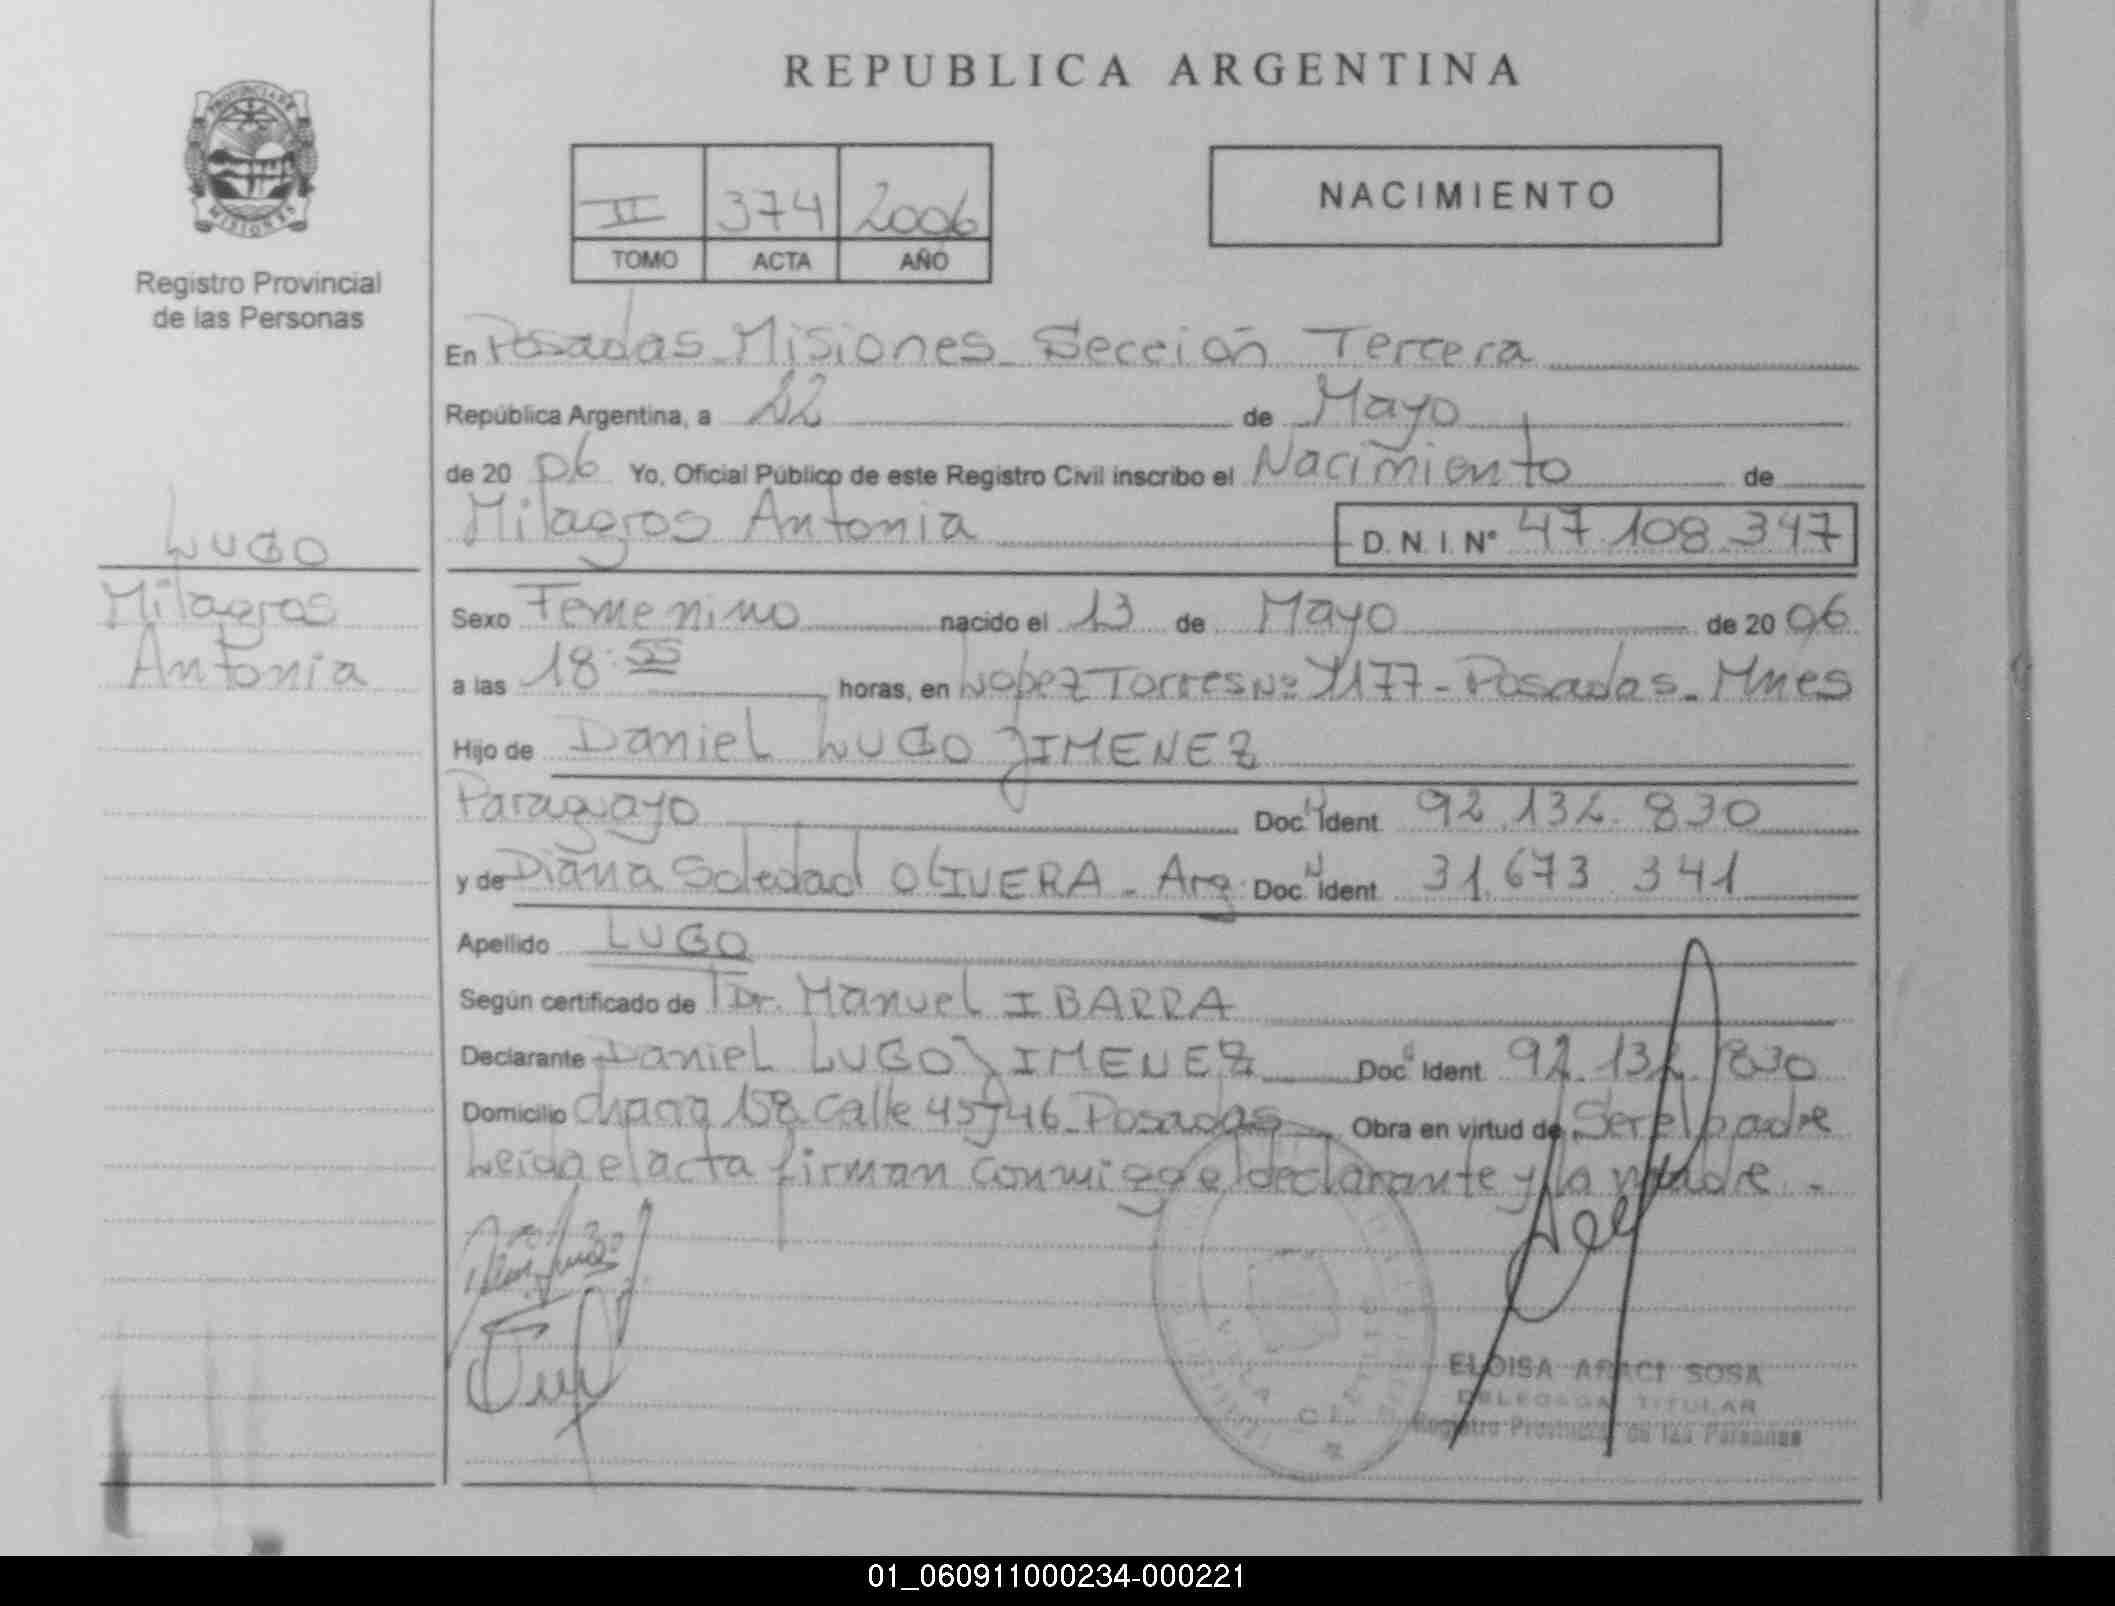 REPUBLICA ARGENTINA
PROVINCIA DE
MISIONES
Registro Provincial
de las Personas
II 374 2006
TOMO ACTA AÑO
NACIMIENTO
En Posadas Misiones Sección Tercera
República Argentina, a 22 de Mayo
de 20 06 Yo, Oficial Público de este Registro Civil inscribo el Nacimiento de
Milagros Antonia D. N. I. N° 47.108.347
LUGO
Milagros
Antonia
Sexo Femenino nacido el 13 de Mayo de 20 06
a las 18:55 horas, en Lopez Torres No 1177 - Posadas - Mnes
Hijo de Daniel LUGO JIMENEZ
Paraguayo Doc. Ident. 92.132.830
y de Diana Soledad OLIVERA - Arg. Doc. Ident. 31.673.341
Apellido LUGO
Según certificado de Dr. Manuel IBARRA
Declarante Daniel LUGO JIMENEZ Doc. Ident. 92.132.830
Domicilio Chacra 158 Calle 45 y 46 - Posadas Obra en virtud de Ser el padre
Leida el acta firman conmigo el declarante y la madre -
ELOISA ARACI SOSA
DELEGADA TITULAR
Registro Provincial de las Personas
01_060911000234-000221